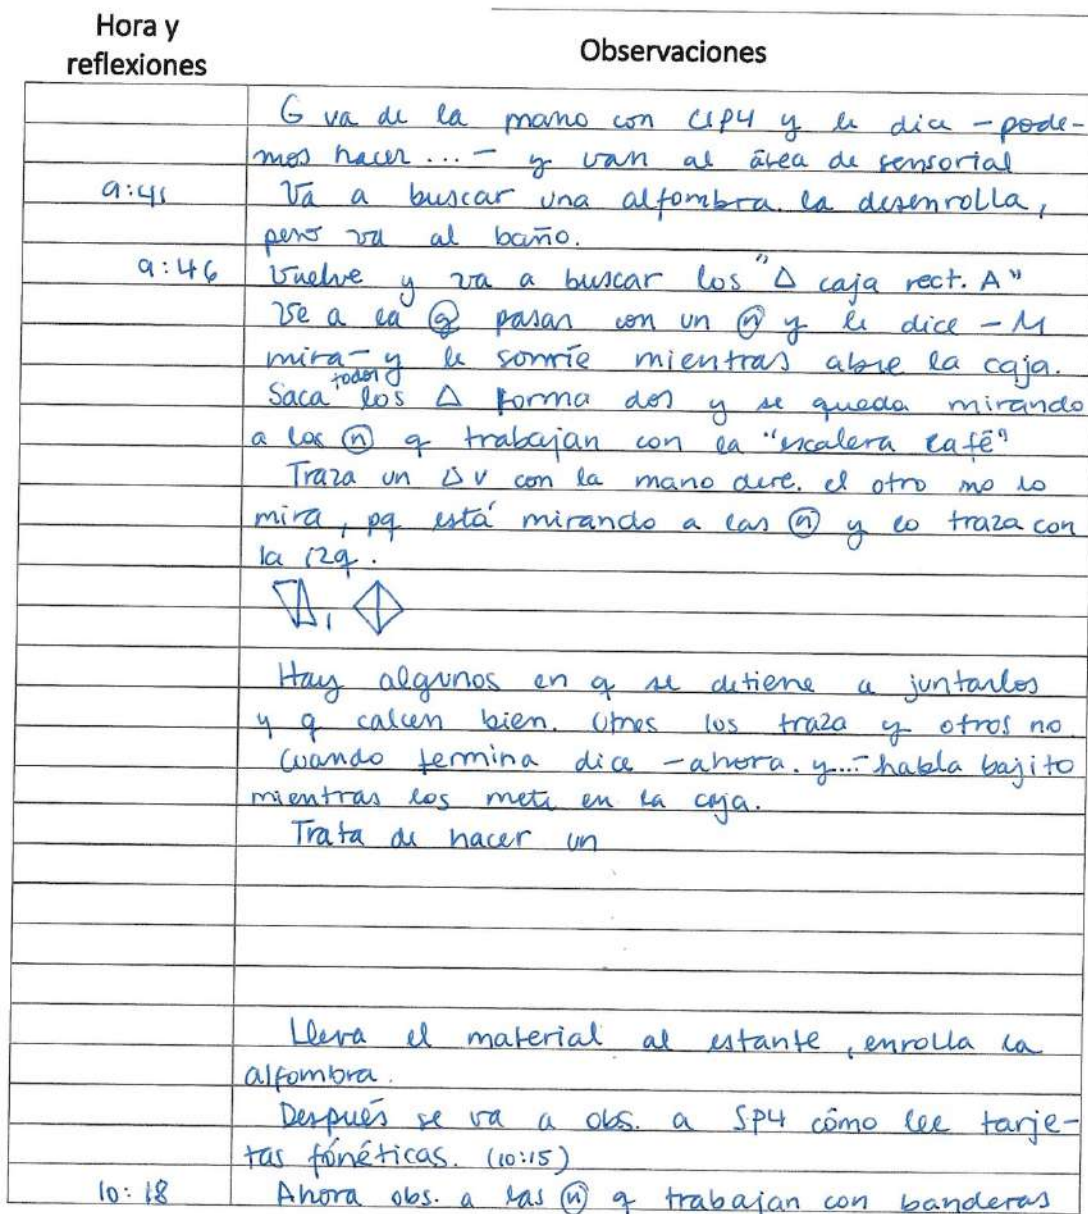 Hora y
reflexiones
Observaciones
G va de la mano con CIP4 y le dice - pode-
mos hacer ... - y van al área de sensorial
9:41 Va a buscar una alfombra. la desenrolla,
pero va al baño.
9:46 Vuelve y va a buscar los "Δ caja rect. A"
Ve a la ⓖ pasar con un ⓝ y le dice - M
mira - y le sonríe mientras abre la caja.
Saca todos los Δ forma dos y se queda mirando
a los ⓝ q trabajan con la "escalera café"
Traza un Δ v con la mano dere. el otro no lo
mira, pq está mirando a las ⓝ y lo traza con
la izq.
Hay algunos en q se detiene a juntarlos
y q calcen bien. Otros los traza y otros no
Cuando termina dice - ahora. y...- habla bajito
mientras los mete en la caja.
Trata de hacer un
Lleva el material al estante, enrolla la
alfombra.
Después se va a obs. a SP4 cómo lee tarje-
tas fónéticas. (10:15)
10:18 Ahora obs. a las ⓝ q trabajan con banderas